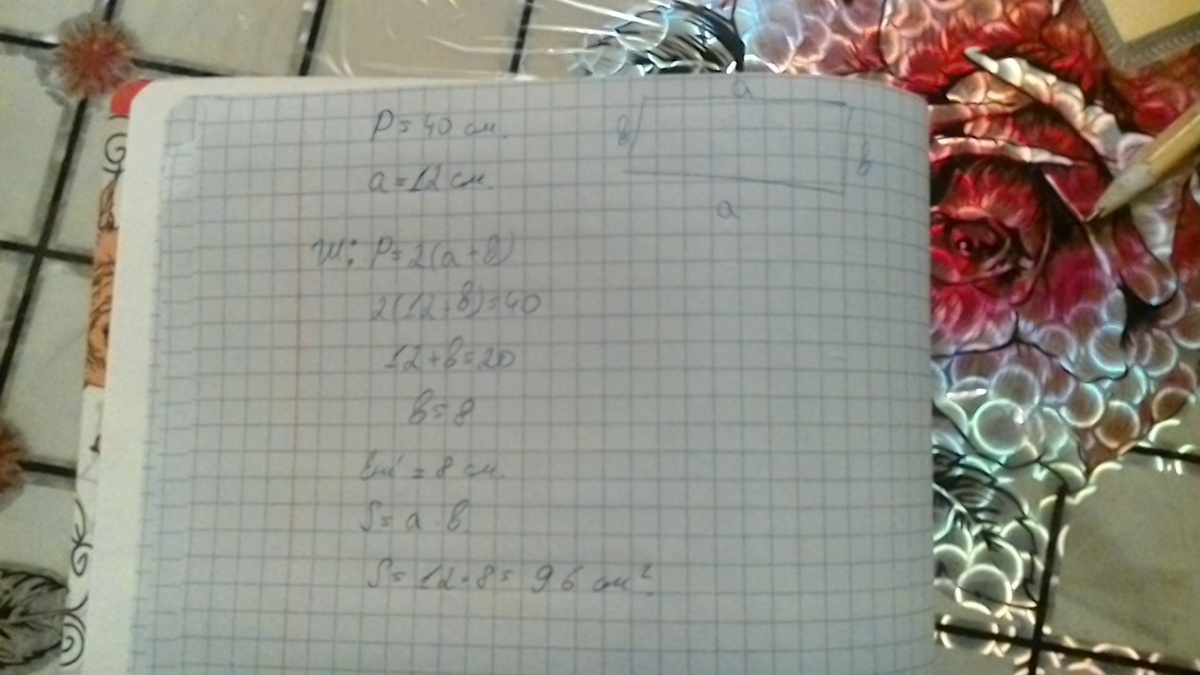 P = 40 см.
a = 12 см.
a
в
в
a
Ш: P = 2(a + в)
2(12 + в) = 40
12 + в = 20
в = 8
Ені = 8 см.
S = a · в.
S = 12 · 8 = 96 см².